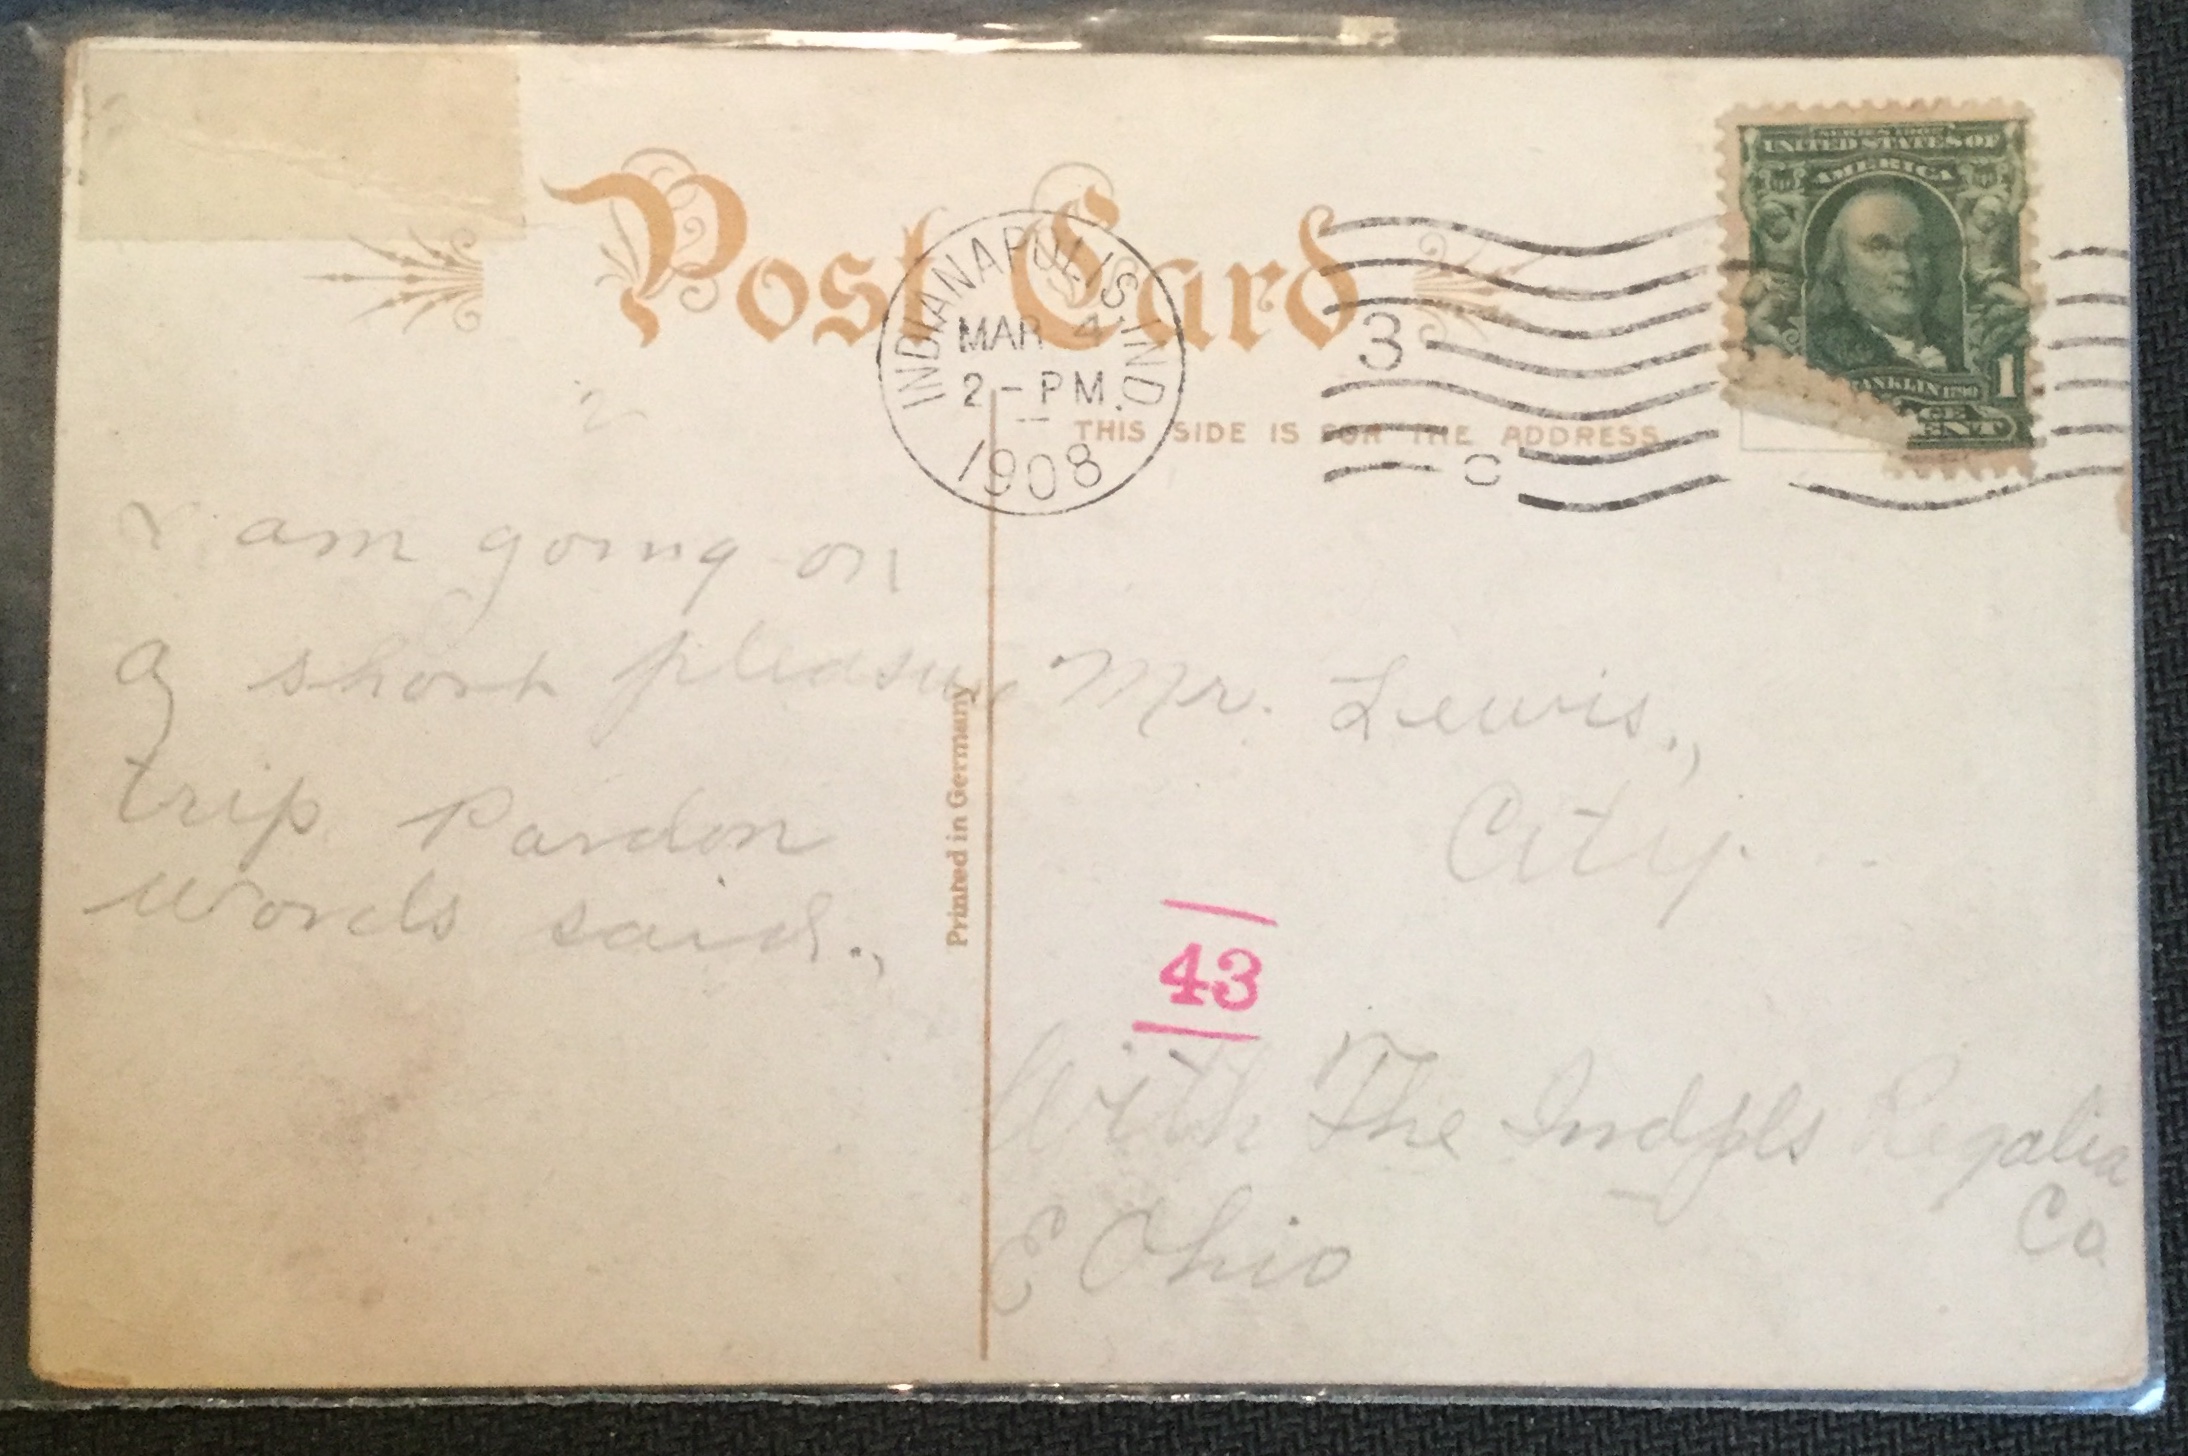 Post Card
INDIANAPOLIS, IND.
MAR 4
2 - PM.
1908
3
C
SERIES 1902
UNITED STATES OF
AMERICA
FRANKLIN 1790
1
CENT
THIS SIDE IS FOR THE ADDRESS
2
I am going on
a short pleasure
trip. Pardon
words said.,
Printed in Germany
Mr. Lewis.,
City.
43
With The Indpls Regalia
Co
E Ohio